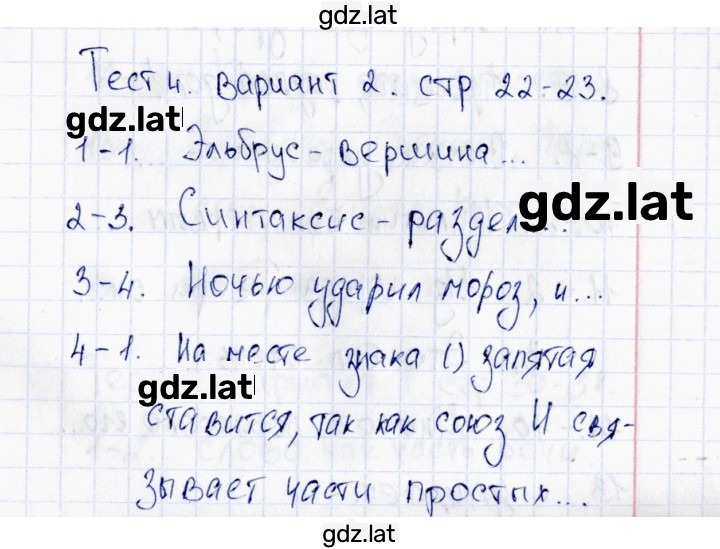 gdz.lat
Тест 4. Вариант 2. стр 22-23.
gdz.lat
1-1. Эльбрус - вершина...
gdz.lat
2-3. Синтаксис - раздел...
3-4. Ночью ударил мороз, и...
4-1. На месте знака () запятая
gdz.lat
ставится, так как союз И свя-
зывает части простых...
gdz.lat